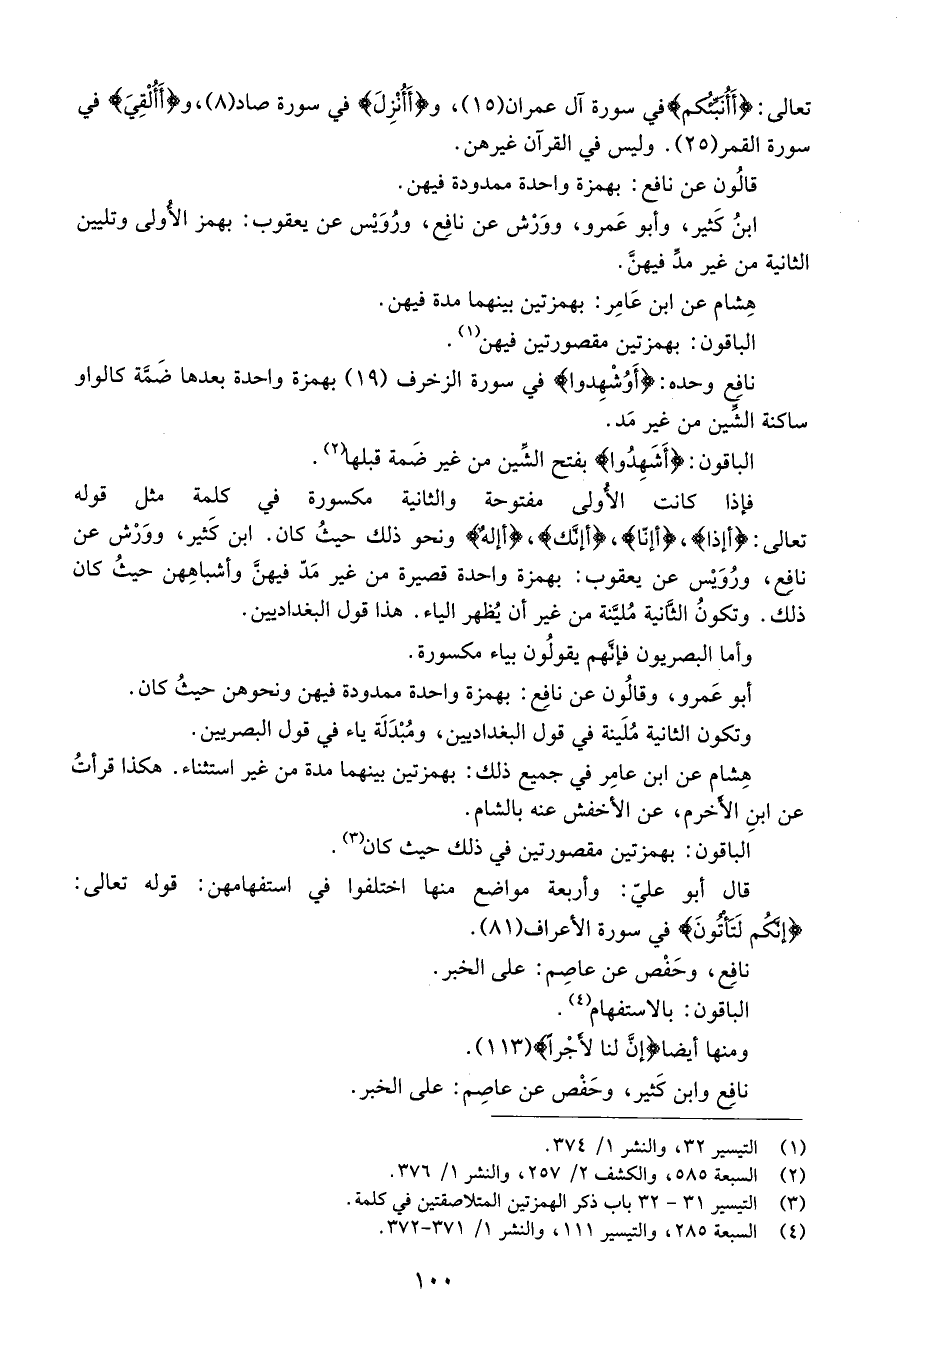 تعالى: ﴿أَأُنَبِّئُكُم﴾في سورة آل عمران(١٥)، و﴿أَأُنْزِلَ﴾ في سورة صاد(٨)،و﴿أَأُلْقِيَ﴾ في
سورة القمر(٢٥). وليس في القرآن غيرهن.
قالُون عن نافع: بهمزة واحدة ممدودة فيهن.
ابنُ كَثير، وأبو عَمرو، ووَرْش عن نافِع، ورُوَيْس عن يعقوب: بهمز الأُولى وتليين
الثانية من غير مدٍّ فيهنَّ.
هِشام عن ابن عَامِر: بهمزتين بينهما مدة فيهن.
الباقون: بهمزتين مقصورتين فيهن(١).
نافِع وحده: ﴿أَوُشْهِدوا﴾ في سورة الزخرف (١٩) بهمزة واحدة بعدها ضَمَّة كالواو
ساكنة الشِّين من غير مَد.
الباقون: ﴿أَشَهِدُوا﴾ بفتح الشِّين من غير ضَمة قبلها(٢).
فإذا كانت الأُولى مفتوحة والثانية مكسورة في كلمة مثل قوله
تعالى: ﴿أإذا﴾، ﴿أإنّا﴾، ﴿أإنَّك﴾، ﴿أإلهٌ﴾ ونحو ذلك حيثُ كان. ابن كَثير، ووَرْش عن
نافِع، ورُوَيْس عن يعقوب: بهمزة واحدة قصيرة من غير مَدّ فيهنَّ وأشباهِهن حيثُ كان
ذلك. وتكونُ الثَّانية مُليَّنة من غير أن يُظهر الياء. هذا قول البغداديين.
وأما البصريون فإنَّهم يقولُون بياء مكسورة.
أبو عَمرو، وقالُون عن نافِع: بهمزة واحدة ممدودة فيهن ونحوهن حيثُ كان.
وتكون الثانية مُلَينة في قول البغداديين، ومُبْدَلَة ياء في قول البصريين.
هِشام عن ابن عامِر في جميع ذلك: بهمزتين بينهما مدة من غير استثناء. هكذا قرأتُ
عن ابنِ الأَخرم، عن الأخفش عنه بالشام.
الباقون: بهمزتين مقصورتين في ذلك حيث كان(٣).
قال أبو عليّ: وأربعة مواضع منها اختلفوا في استفهامهن: قوله تعالى:
﴿إنَّكُم لَتَأتُونَ﴾ في سورة الأعراف(٨١).
نافِع، وحَفْص عن عاصِم: على الخبر.
الباقون: بالاستفهام(٤).
ومنها أيضا﴿إنَّ لنا لأَجْراً﴾(١١٣).
نافِع وابن كَثير، وحَفْص عن عاصِم: على الخبر.
(١) التيسير ٣٢، والنشر ١/ ٣٧٤.
(٢) السبعة ٥٨٥، والكشف ٢/ ٢٥٧، والنشر ١/ ٣٧٦.
(٣) التيسير ٣١ - ٣٢ باب ذكر الهمزتين المتلاصقتين في كلمة.
(٤) السبعة ٢٨٥، والتيسير ١١١، والنشر ١/ ٣٧١-٣٧٢.
١٠٠